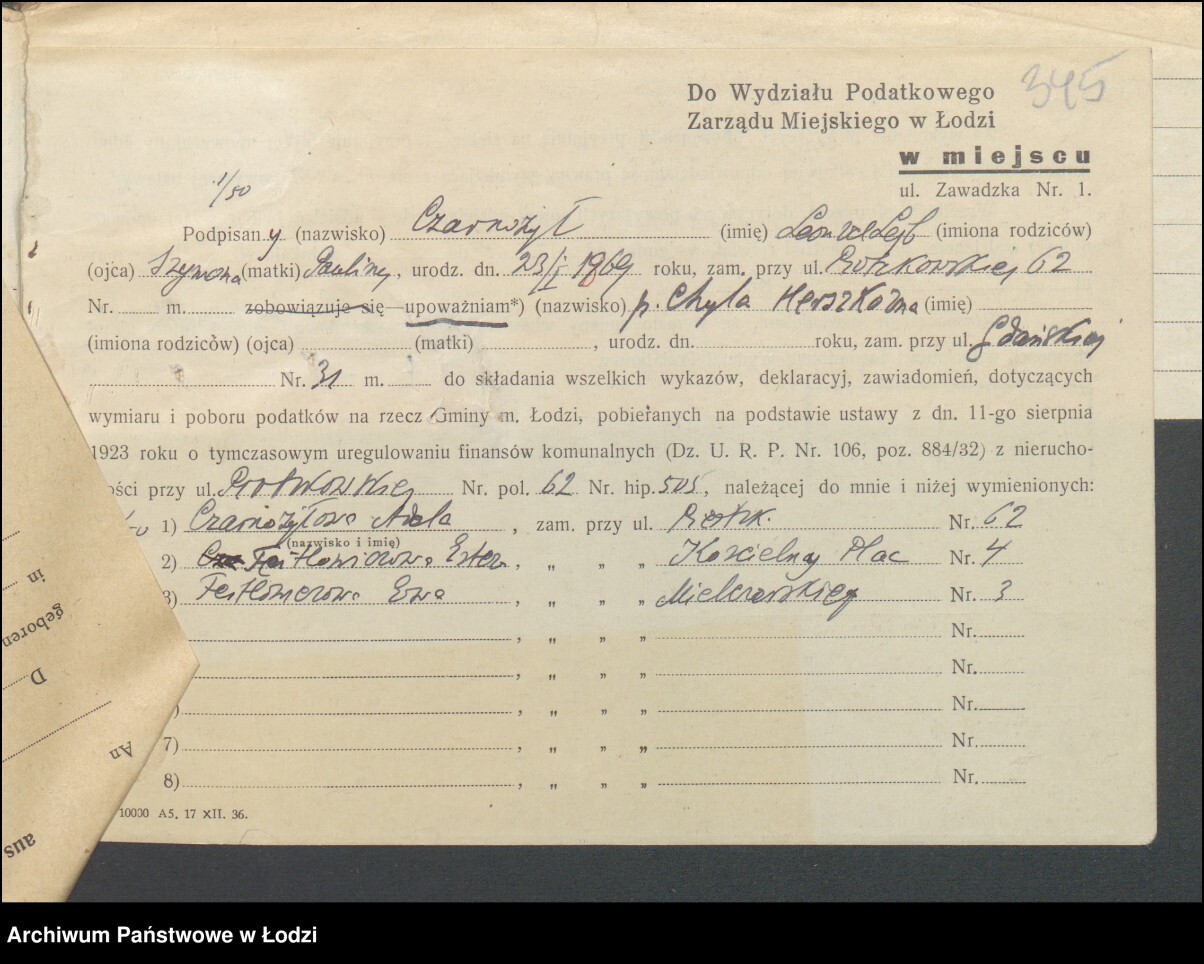 345
Do Wydziału Podatkowego
Zarządu Miejskiego w Łodzi
w miejscu
ul. Zawadzka Nr. 1.
1/50
Podpisany (nazwisko) Czarnożył (imię) Leon vel Lejb (imiona rodziców)
(ojca) Szymona (matki) Pauliny, urodz. dn. 23/I 1869 roku, zam. przy ul. Piotrkowskiej 62
Nr. m. zobowiązuje się—upoważniam*) (nazwisko) p. Chyla Herszkówna (imię)
(imiona rodziców) (ojca) (matki) , urodz. dn. roku, zam. przy ul. Gdańskiej
Nr. 31 m. do składania wszelkich wykazów, deklaracyj, zawiadomień, dotyczących
wymiaru i poboru podatków na rzecz Gminy m. Łodzi, pobieranych na podstawie ustawy z dn. 11-go sierpnia
1923 roku o tymczasowym uregulowaniu finansów komunalnych (Dz. U. R. P. Nr. 106, poz. 884/32) z nierucho-
ości przy ul. Piotrkowskiej Nr. pol. 62 Nr. hip. 505, należącej do mnie i niżej wymienionych:
1) Czarnożyłowa Adela , zam. przy ul. Piotrk. Nr. 62
(nazwisko i imię)
2) Estera , „ „ „ Kościelny Plac Nr. 4
3) Ewa , „ „ „ Mielczarskiego Nr. 3
, „ „ „ Nr.
, „ „ „ Nr.
) , „ „ „ Nr.
7) , „ „ „ Nr.
8) , „ „ „ Nr.
10000 A5. 17 XII. 36.
in
geboren
D
An
aus
Archiwum Państwowe w Łodzi